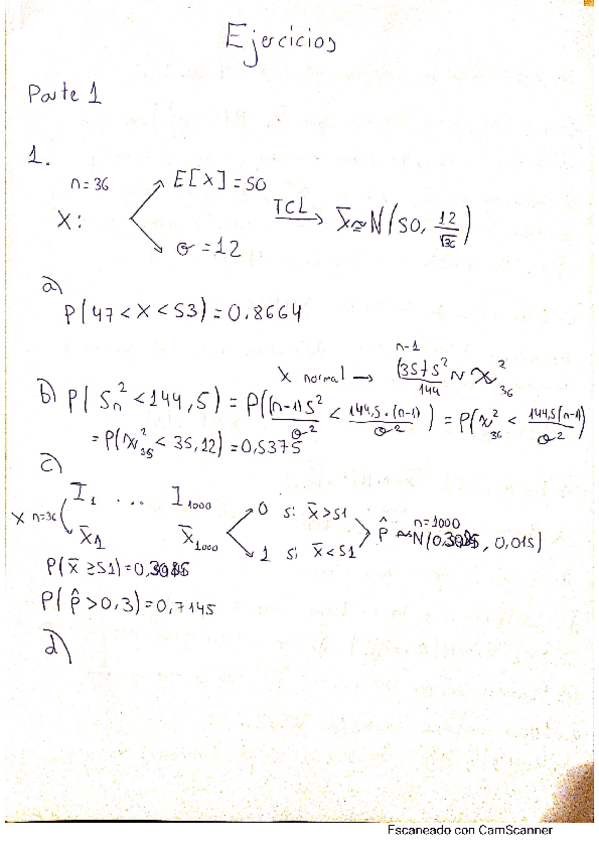 Ejercicios
Parte 1
1.
n=36
E[X]=50
X:
TCL → X̄≈N(50, 12/√36)
σ=12
a)
P(47<X<53)=0.8664
X normal → (35)S²/144 ~ χ²₃₆
n-1
b) P(Sₙ²<144,5) = P((n-1)S²/σ² < 144,5.(n-1)/σ²) = P(χ²₃₆ < 144,5(n-1)/σ²)
= P(χ²₃₅ < 35,12) = 0,5375
c)
I₁ ... I₁₀₀₀
0 si X̄>51
X n=36
X̄₁ X̄₁₀₀₀
P̂ ≈ N(0.3085, 0,015)
n=1000
1 si X̄<51
P(X̄≥51)=0,3085
P(P̂>0,3)=0,7145
d)
Escaneado con CamScanner